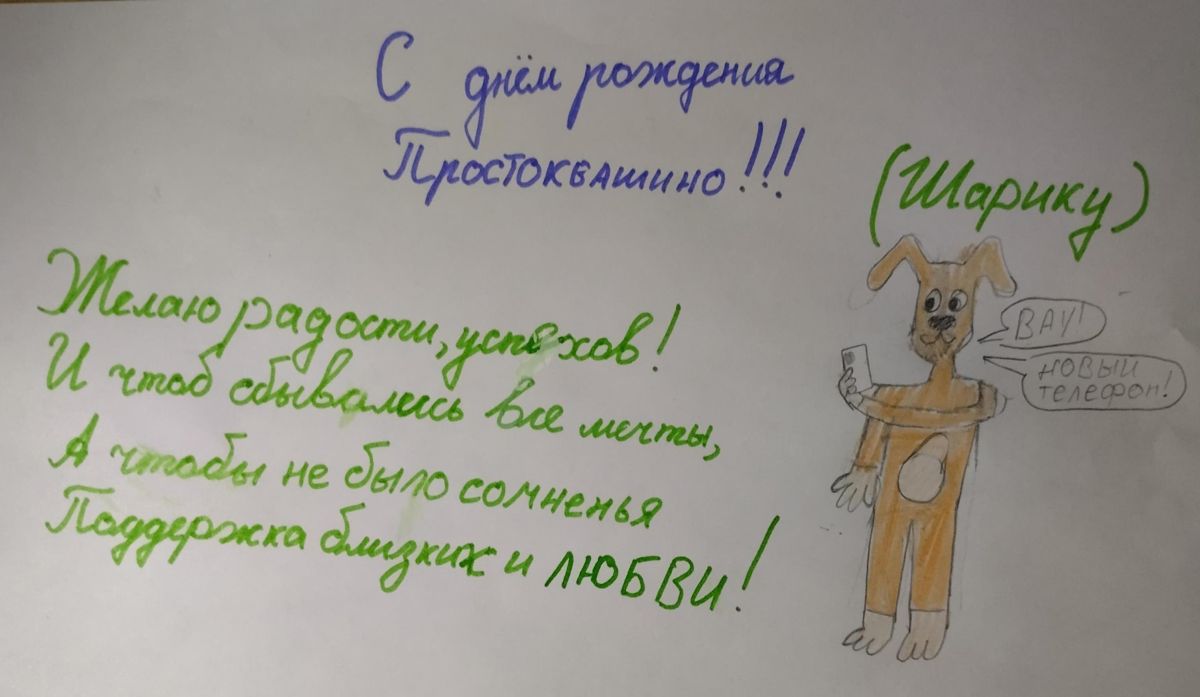 С днём рождения
Простоквашино!!!
(Шарику)
Желаю радости, успехов!
И чтоб сбывались все мечты,
А чтобы не было сомненья
Поддержка близких и ЛЮБВИ!
ВАУ!
НОВЫЙ
ТЕЛЕФОН!